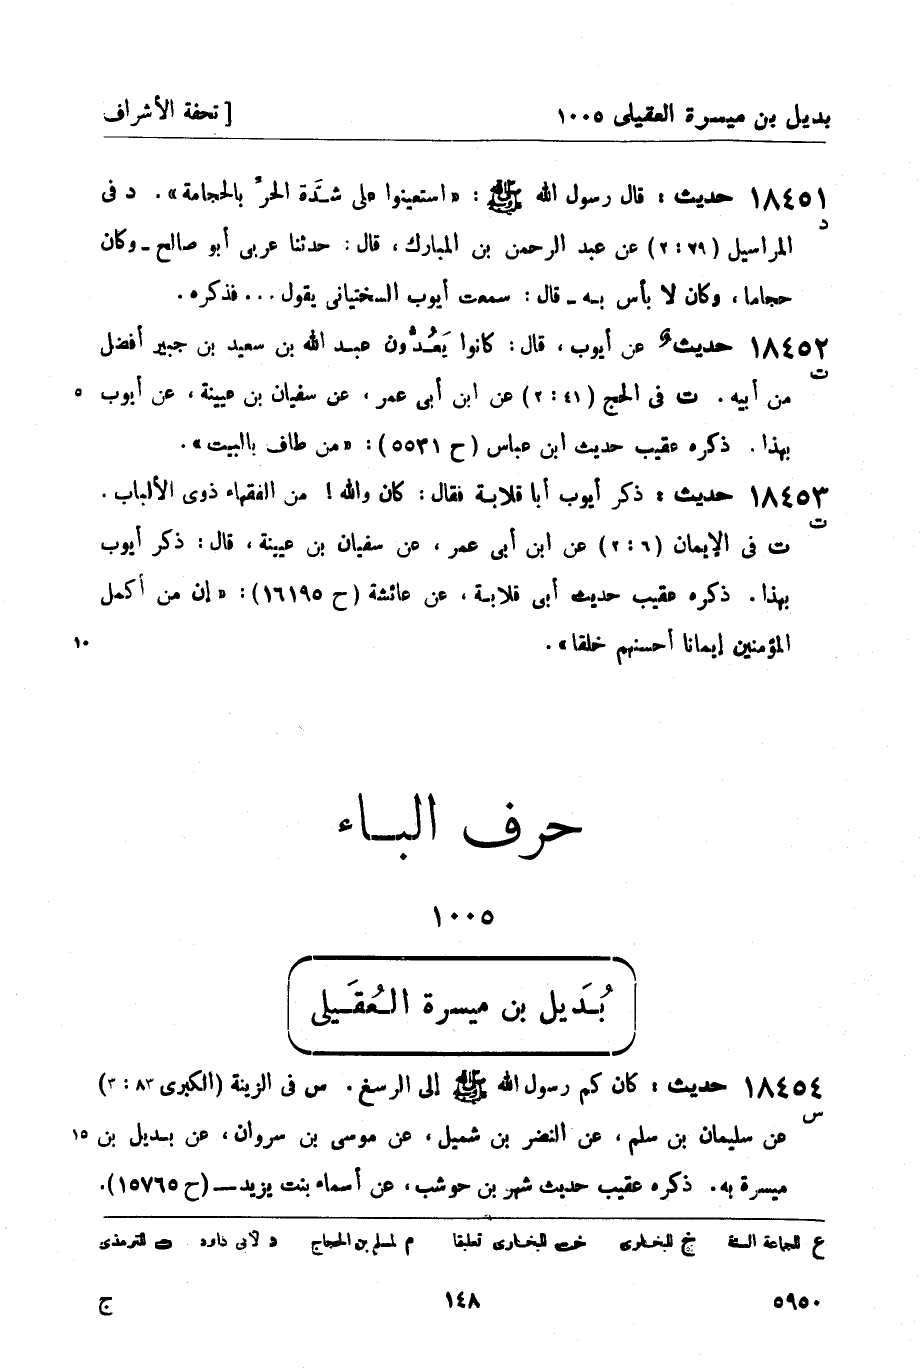 بديل بن ميسرة العقيلى ١٠٠٥ [ تحفة الأشراف
١٨٤٥١ حديث : قال رسول الله ﷺ : «استعينوا على شدَّة الحرّ بالحجامة». د فى
د
المراسيل (٧٩ : ٢) عن عبد الرحمن بن المبارك ، قال : حدثنا عربى أبو صالح ـ وكان
حجاما، وكان لا بأس بـه ـ قال : سمعت أيوب السختيانى يقول ... فذكره.
١٨٤٥٢ حديث عن أيوب ، قال : كانوا يَعُدُّون عبد الله بن سعيد بن جبير أفضل
ت
من أبيه . ت فى الحج (٤١ : ٢) عن ابن أبى عمر ، عن سفيان بن عيينة ، عن أيوب ٥
بهذا . ذكره عقيب حديث ابن عباس (ح ٥٥٣١) : «من طاف بالبيت».
١٨٤٥٣ حديث : ذكر أيوب أبا قلابة فقال : كان والله ! من الفقهاء ذوى الألباب .
ت
ت فى الإيمان (٦ : ٢) عن ابن أبى عمر ، عن سفيان بن عيينة ، قال : ذكر أيوب
بهذا . ذكره عقيب حديث أبى قلابة ، عن عائشة (ح ١٦١٩٥) : «إن من أكمل
المؤمنين إيمانا أحسنهم خلقا». ١٠
حرف البـاء
١٠٠٥
بُدَيل بن ميسرة العُقَيلى
١٨٤٥٤ حديث : كان كم رسول الله ﷺ إلى الرسغ . س فى الزينة (الكبرى ٨٣ : ٣)
س
عن سليمان بن سلم ، عن النضر بن شميل ، عن موسى بن سروان ، عن بديل بن ١٥
ميسرة به . ذكره عقيب حديث شهر بن حوشب ، عن أسماء بنت يزيد ــ (ح ١٥٧٦٥).
ع للجماعة الستة خ للبخارى خت للبخارى تعليقا م لمسلم بن الحجاج د لأبى داود ت للترمذى
٥٩٥٠ ١٤٨ ج